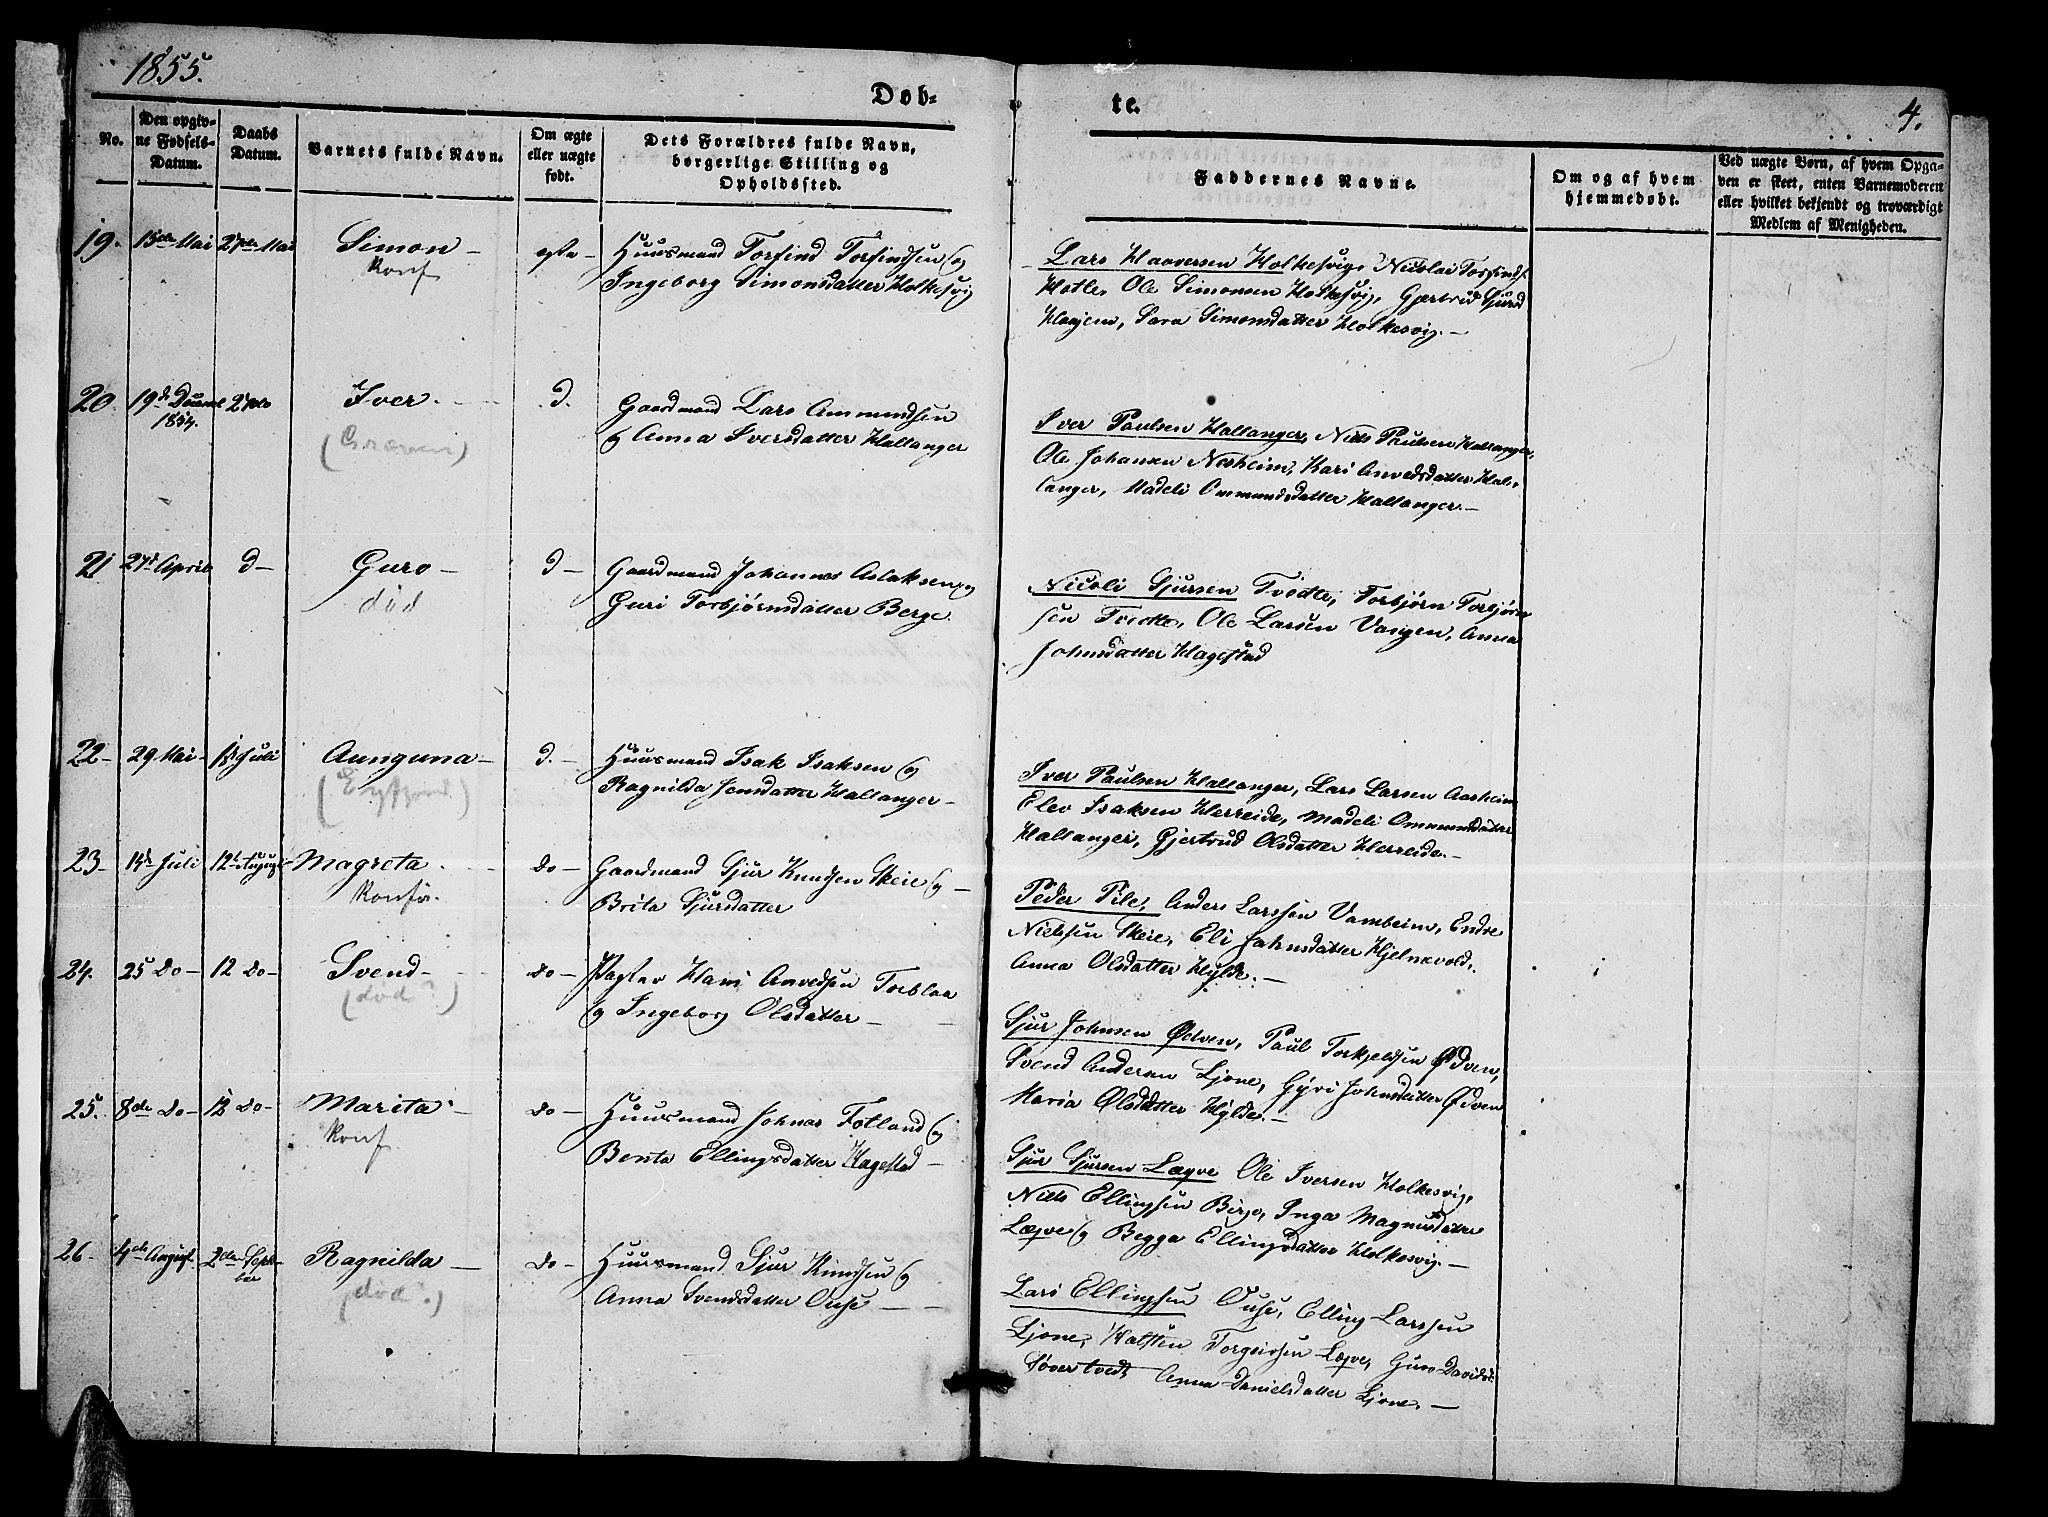 1855.
Døb-
te.
4.
No.
Den opgiv-
ne Fødsels-
Datum.
Daabs
Datum.
Barnets fulde Navn.
Om ægte
eller uægte
født.
Dets Forældres fulde Navn,
borgerlige Stilling og
Opholdssted.
Faddernes Navne.
Om og af hvem
hjemmedøbt.
Ved uægte Børn, af hvem Opga-
ven er skeet, enten Barnemoderen
eller hvilket bekjendt og troværdigt
Medlem af Menigheden.
19. 15de Mai 27de Mai Simon – ægte – Huusmand Torfind Torfindsen og
Konf
Ingeborg Simonsdatter Holkesvig
Lars Haaversen Holkesvig, Nicolai Torfinds.
Ole Simonsen Holkesvig, Gjertrud Sjurd
Sara Simonsdatter Holkesvig. –
20 19d 27de Iver. D. Gaardmand Lars Ammundsen
1854.
(Graven)
og Anna Iversdatter Hallanger
Iver Paulsen Hallanger, Niels Paulsen Hallanger,
Ole Johansen Nesheim, Kari Anvedsdatter Hal-
langer, Madeli Ommundsdatter Hallanger. –
21 27d April D – Guro – D – Gaardmand Johannes Aslaksen og
død
Guri Torbjørnsdatter Berge.
Nicoli Sjursen Tvedte, Torbjørn Torbjørn
sen Tvedte, Ole Larsen Vangen, Anna
Johnsdatter Hagestad
22 – 29 Mai – 1st Juli Aunguna – D. – Huusmand Isak Isaksen og
(Eyfjord)
Ragnilda Jonsdatter Hallanger –
Iver Paulsen Hallanger, Lars Larsen Aasheim
Elev Isaksen Herreide, Madeli Ommundsdatter
Hallanger, Gjertrud Olsdatter Herreide. –
23 – 14d Juli 12t August Magreta. Do – Gaardmand Sjur Knudsen Skeie og –
Konfir.
Brita Sjursdatter
Peder Pile, Anders Larssen Vambeim, Endre
Nielssen Skeie, Eli Jahnsdatter Hjelnevold,
Anna Olsdatter Hylde. –
24. 25 Do – 12 Do – Svend – Do – Hans Anvedsen Torblaa
(død?)
og Ingeborg Olsdatter –
Sjur Johnsen Ødven, Paul Torkjeldsen Ødven,
Svend Andersen Ljone, Gyri Johnsdatter Ødven
Maria Olsdatter Hylde. –
25. 8de Do – 12 Do – Marita – Do – Huusmand Johnas Fotland og
Konf
Benta Ellingsdatter Hagestad –
Sjur Sjursen Læqve Ole Iversen Holkesvig,
Niels Ellingsen Birje, Inga Magnusdatter
Læqve og Begga Ellingsdatter Holkesvig. –
26 – 4de August 2den Septbr Ragnilda – Do – Huusmand Sjur Knudsen og
(død.)
Anna Svendsdatter Ouse –
Lars Ellingsen Ouse, Elling Larssen
Ljone, Halsten Torgeirsen Læqve, Guro Davidsd.
Søvertvedt Anna Danielsdatter Ljone. –